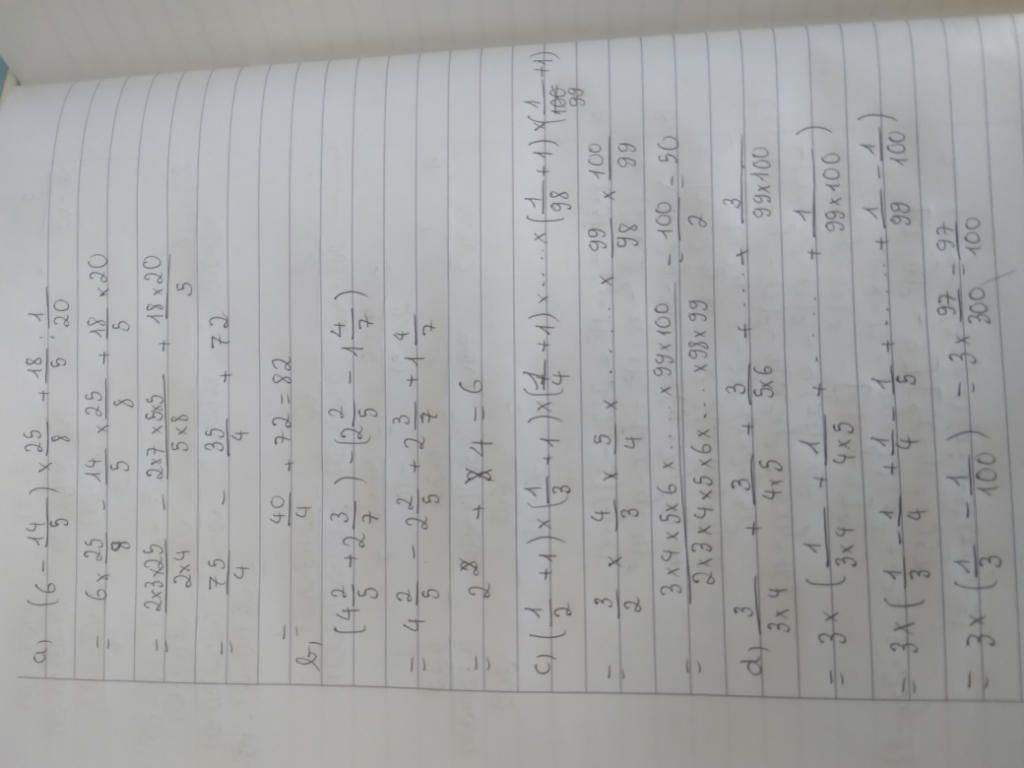 a) (6 - 14/5) x 25/8 + 18/5 : 1/20
= 6x25/8 - 14/5 x 25/8 + 18/5 x 20
= 2x3x25/2x4 - 2x7x5x5/5x8 + 18x20/5
= 75/4 - 35/4 + 72
= 40/4 + 72 = 82
b)
(4 2/5 + 2 3/7) - (2 2/5 - 1 4/7)
= 4 2/5 - 2 2/5 + 2 3/7 + 1 4/7
= 2 + 4 = 6
c) (1/2 + 1) x (1/3 + 1) x (1/4 + 1) x .... x (1/98 + 1) x (1/99 + 1)
= 3/2 x 4/3 x 5/4 x ..... x 99/98 x 100/99
= 3x4x5x6x...x99x100/2x3x4x5x6x...x98x99 = 100/2 = 50
d) 3/3x4 + 3/4x5 + 3/5x6 + ....+ 3/99x100
= 3x (1/3x4 + 1/4x5 + ...... + 1/99x100)
= 3x (1/3 - 1/4 + 1/4 - 1/5 + ..... + 1/99 - 1/100)
= 3x (1/3 - 1/100) = 3x 97/300 = 97/100